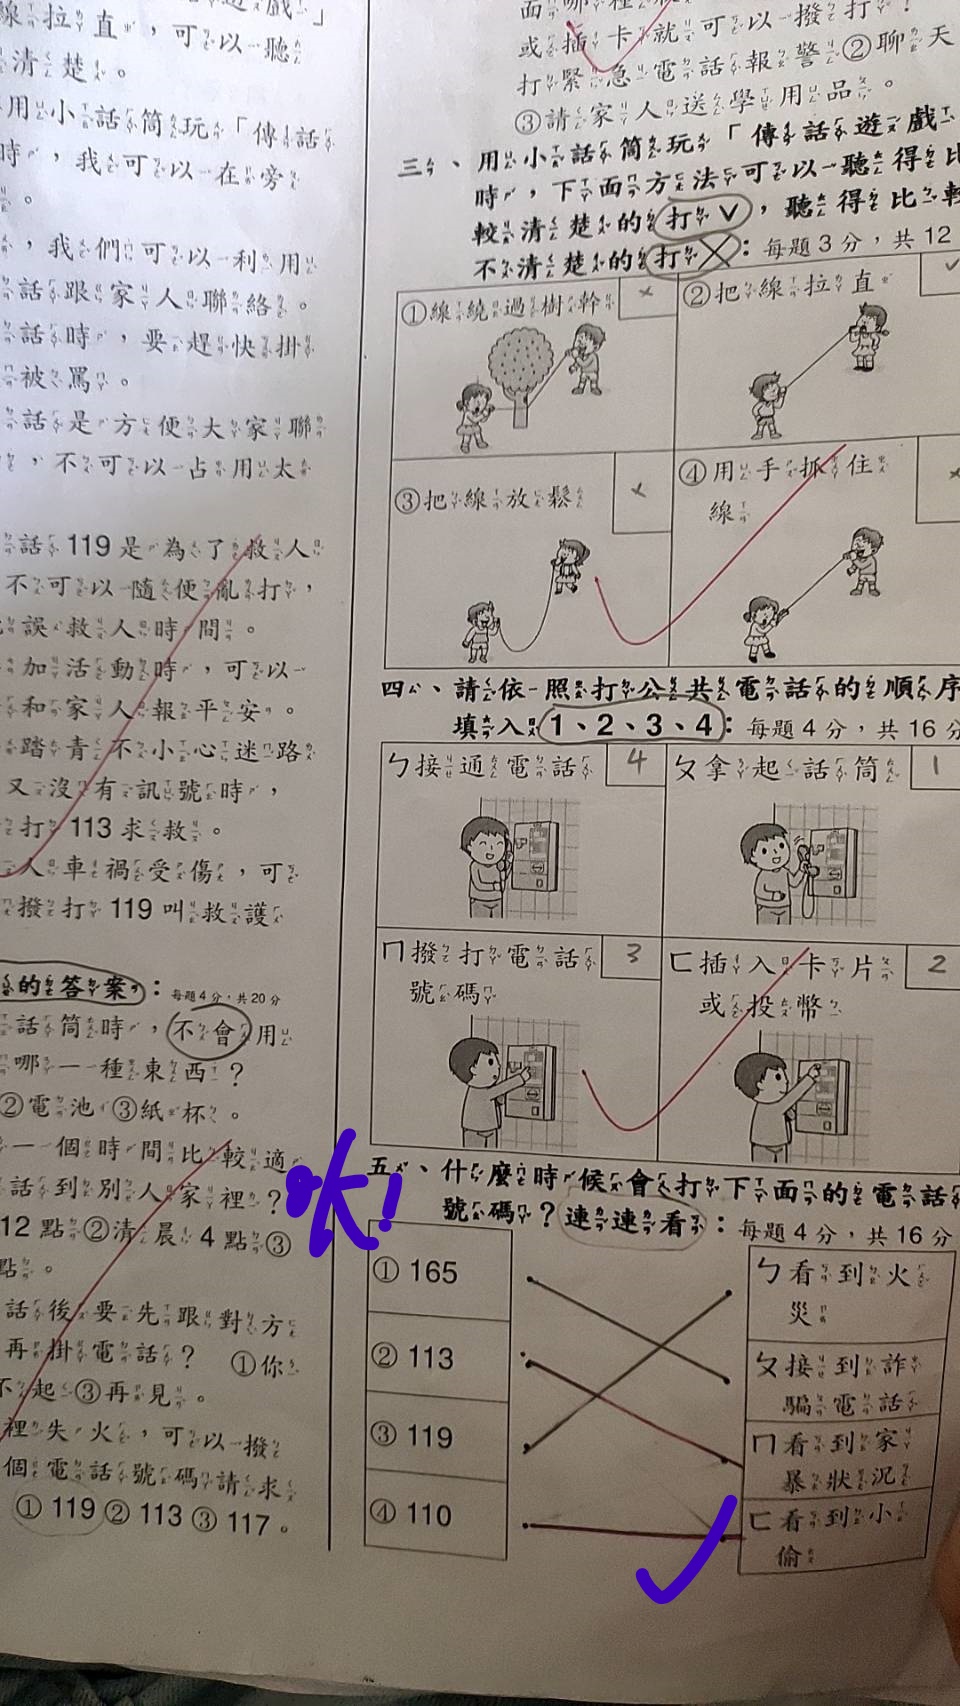 線拉直，可以聽
清楚。
用小話筒玩「傳話
時，我可以在旁
。
，我們可以利用
話跟家人聯絡。
話時，要趕快掛
被罵。
話是方便大家聯
，不可以占用太
話119是為了救人
不可以隨便亂打，
誤救人時間。
加活動時，可以
和家人報平安。
踏青不小心迷路
又沒有訊號時，
打113求救。
人車禍受傷，可
撥打119叫救護
的答案：每題4分，共20分
話筒時，不會用
哪一種東西？
②電池③紙杯。
一個時間比較適
話到別人家裡？
12點②清晨4點③
點。
話後要先跟對方
再掛電話？ ①你
不起③再見。
裡失火，可以撥
個電話號碼請求
①119②113③117。
或插卡就可以撥打
打緊急電話報警②聊天
③請家人送學用品。
三、用小話筒玩「傳話遊戲
時，下面方法可以聽得比
較清楚的打V，聽得比較
不清楚的打X：每題3分，共12
①線繞過樹幹 ×
②把線拉直 ✓
③把線放鬆 ×
④用手抓住
線 ×
四、請依照打公共電話的順序
填入1、2、3、4：每題4分，共16分
ㄅ接通電話 4
ㄆ拿起話筒 1
ㄇ撥打電話 3
號碼
ㄈ插入卡片 2
或投幣
五、什麼時候會打下面的電話
號碼？連連看：每題4分，共16分
OK!
① 165
② 113
③ 119
④ 110
ㄅ看到火
災
ㄆ接到詐
騙電話
ㄇ看到家
暴狀況
ㄈ看到小
偷